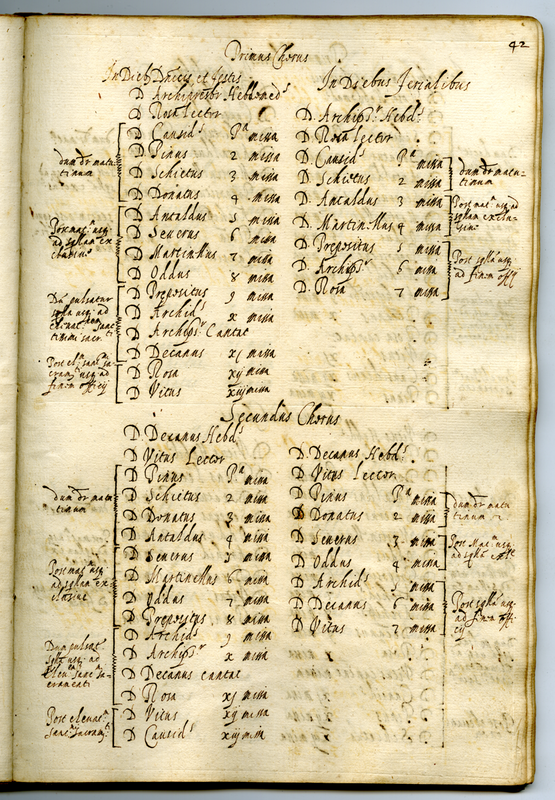 42
Primus Chorus
In Dieb. Dnicis et festis
D. Archipresbr Hebdomed.s
D. Rosa Lector
D. Causid.s P.a missa
D. Pinus 2 missa
D. Schietus 3 missa
D. Donatus 4 missa
D. Antaldus 5 missa
D. Seuerus 6 missa
D. Martinellus 7 missa
D. Oddus 8 missa
D. Prepositus 9 missa
D. Archid.s x missa
D. Archipr. Cantat
D. Decanus xj missa
D. Rosa xij missa
D. Vitus xiij missa
dum dr matu
tinum
Post mat.m usq
ad epłam ex
clusiue
Du pulsatur
usq ad
Post
usq ad
finem officij
In Diebus ferialibus
D. Archipr. Hebd.s
D. Rosa Lector
D. Causid.s P.a missa
D. Schietus 2 missa
D. Antaldus 3 missa
D. Martinellus 4 missa
D. Prepositus 5 missa
D. Archipr. 6 missa
D. Rosa 7 missa
dum dr matu-
tinum
Post mat.m usq ad
exclu-
siue
Post usq
ad finem offij
Secundus Chorus
D. Decanus Hebd.s
D. Vitus Lector
D. Pinus P.a missa
D. Schietus 2 missa
D. Donatus 3 missa
D. Antaldus 4 missa
D. Seuerus 5 missa
D. Martinellus 6 missa
D. Oddus 7 missa
D. Prepositus 8 missa
D. Archid.s 9 missa
D. Archipr. x missa
D. Decanus cantat
D. Rosa xj missa
D. Vitus xij missa
D. Causid.s xiij missa
dum dr matu
tinum
Post mat.m usq
ad ex
clusiue
Dum pulsat.
usq ad
Post eleuat.m
D. Decanus Hebd.s
D. Vitus Lector
D. Pinus P.a missa
D. Donatus 2 missa
D. Seuerus 3 missa
D. Oddus 4 missa
D. Archid.s 5 missa
D. Decanus 6 missa
D. Vitus 7 missa
dum dr matu
tinum
Post Mat.m usq
ad
Post usq
ad finem offi
cij